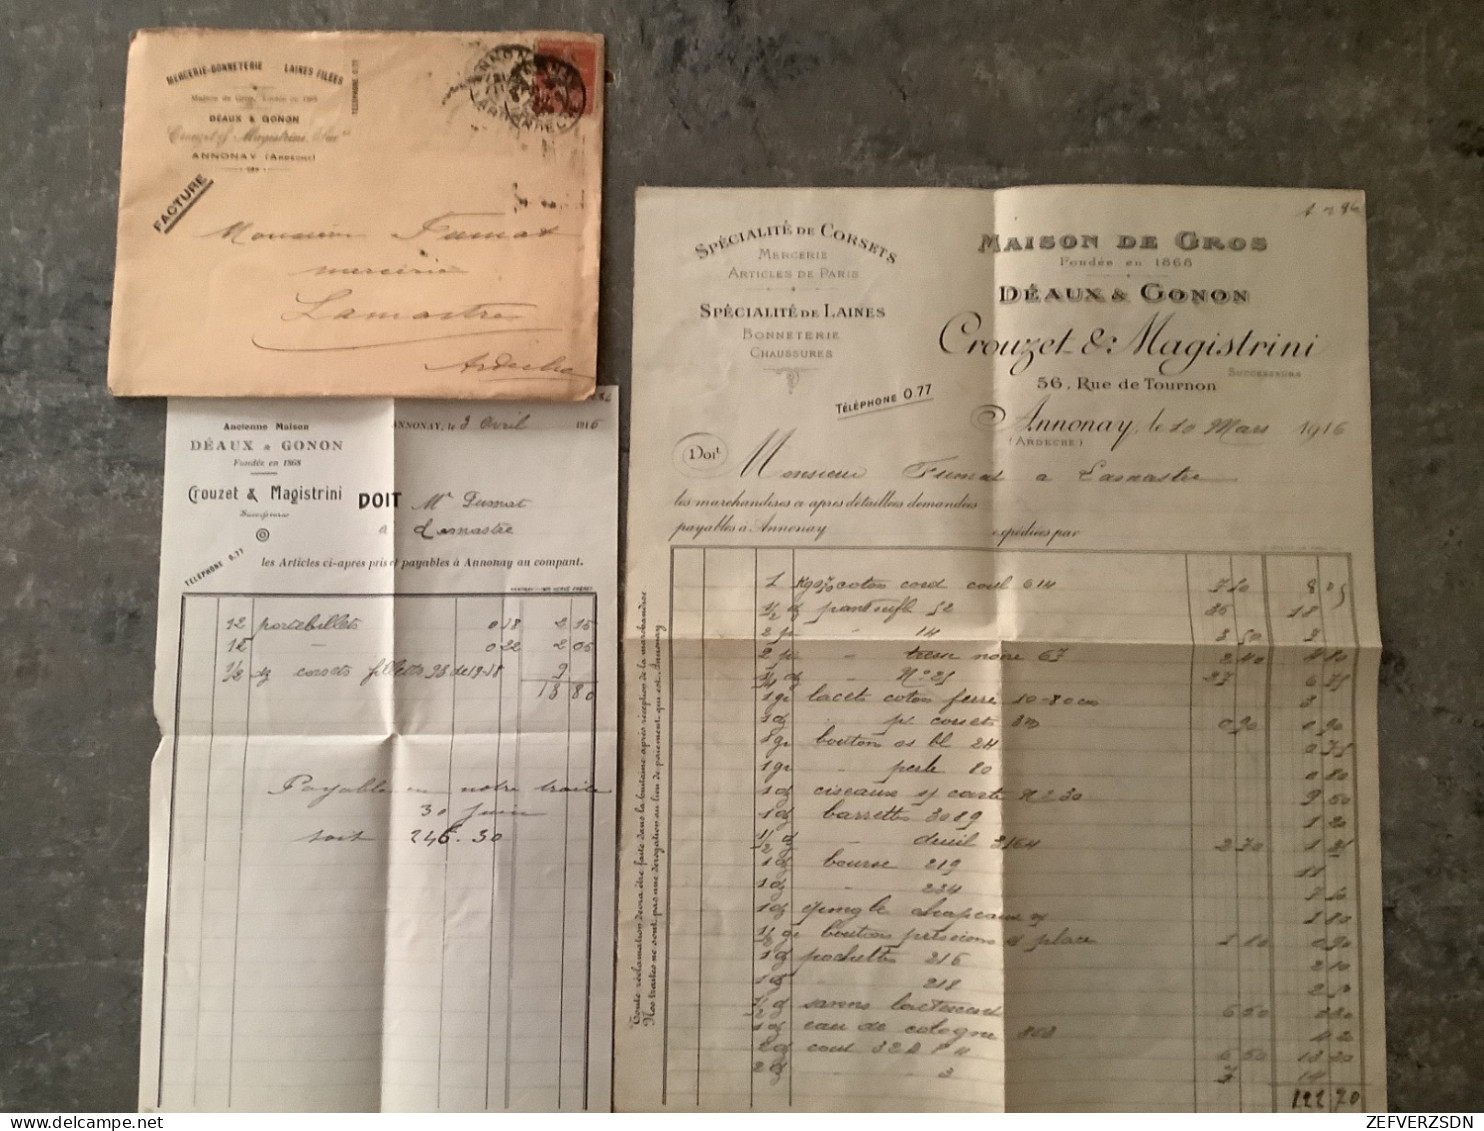 MERCERIE-BONNETERIE LAINES FILÉES
TÉLÉPHONE 0.77
Maison de Gros, Fondée en 1868
DÉAUX & GONON
Crouzet & Magistrini, Succrs
ANNONAY (Ardèche)
FACTURE
Monsieur Fumat
mercerie
Lamastre
Ardèche
Ancienne Maison
DÉAUX & GONON
Fondée en 1868
Crouzet & Magistrini
Successeurs
TÉLÉPHONE 0.77
ANNONAY, le 3 Avril 1916
DOIT Mr Fumat
a Lamastre
les Articles ci-après pris et payables à Annonay au comptant.
12 portebillets 0 18 2 15
12 — 0 22 2 05
1/2 corsets fillette 9
18 80
Payable en notre traite
30 Juin
soit 246.30
SPÉCIALITÉ DE CORSETS
MERCERIE
ARTICLES DE PARIS
SPÉCIALITÉ DE LAINES
BONNETERIE
CHAUSSURES
TÉLÉPHONE 0.77
MAISON DE GROS
Fondée en 1868
DÉAUX & GONON
Crouzet & Magistrini
SUCCESSEURS
56, Rue de Tournon
Annonay, le 10 Mars 1916
(ARDÈCHE)
Doit Monsieur Fumat a Lamastre
les marchandises ci après détaillées demandées
payables à Annonay expédiées par
Toute réclamation devra être faite dans la huitaine après réception de la marchandise
Nos traites ne sont pas une dérogation au lieu de paiement qui est Annonay
1 coton cord 614 7 50 8 05
1/2 d pantoufl 52 36 18
2 p " 14 3 50 7
2 p " tresse noire 67 2 40 4 80
1/4 d " No 25 27 6 75
1 gr lacet coton ferré 10-80 cm 3
1 d " p. corset 0 90 0 90
1 gr bouton os bl 24 0 75
1 gr " perle 80 0 80
1 d ciseaux s/ carte No 230 9 50
1 d barrette 3089 1 20
1/2 d " deuil 3164 2 70 1 35
1 d bourse 219 11
1 d " 234
1 d épingle chapeaux 1 80
1/2 gr boutons pressions 1 80 0 90
1 d pochette 216 2 10
1 d " 218 2 50
1/2 d savons 6 60
1 d eau de cologne 808 4 20
2 d 6 60 13 20
2 d " 3 7 14
122 70
ZEFVERZSDN